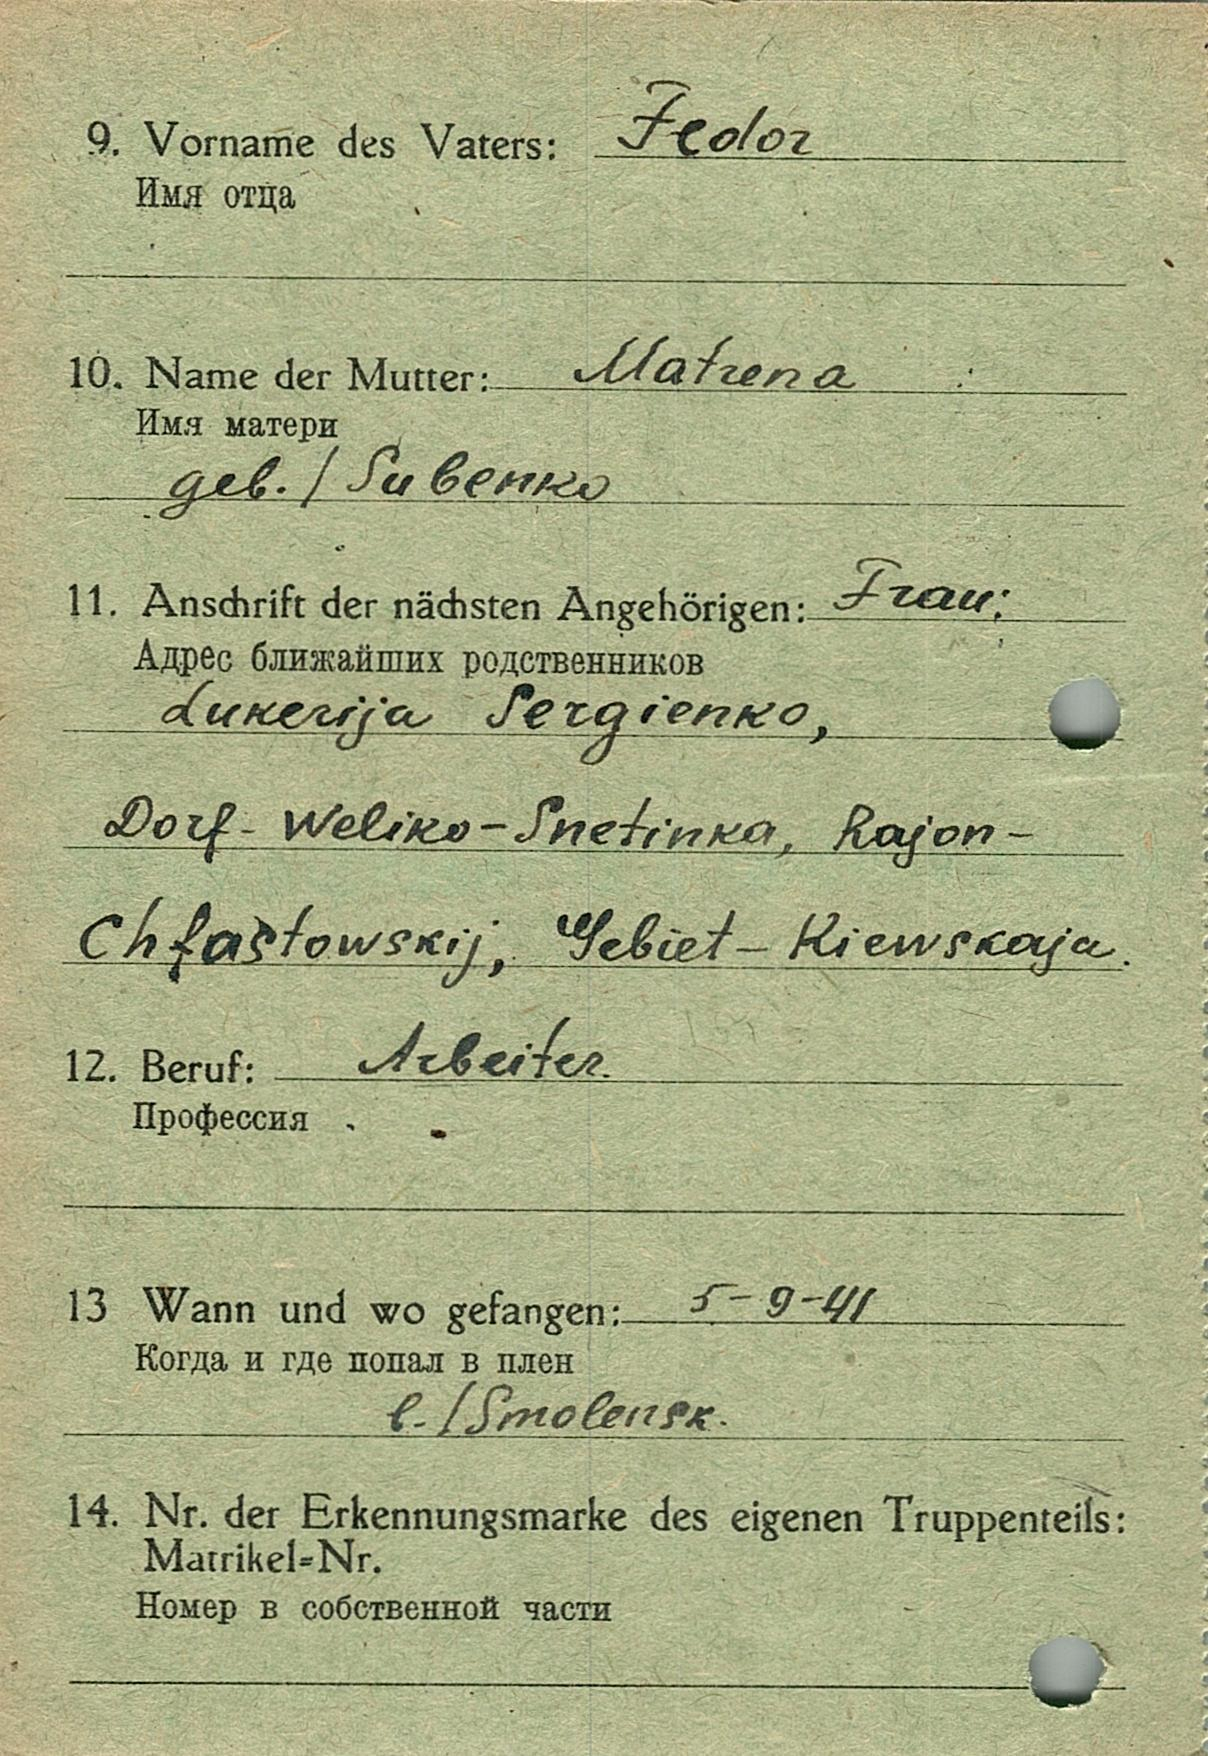 9. Vorname des Vaters: Fedor
Имя отца
10. Name der Mutter: Matrena
Имя матери
geb. / Subenko
11. Anschrift der nächsten Angehörigen: Frau:
Адрес ближайших родственников
Lukerija Sergienko,
Dorf- Weliko-Snetinka, Rajon-
Chfastowskij, Gebiet- Kiewskaja.
12. Beruf: Arbeiter.
Профессия
13 Wann und wo gefangen: 5-9-41
Когда и где попал в плен
b./Smolensk.
14. Nr. der Erkennungsmarke des eigenen Truppenteils:
Matrikel=Nr.
Номер в собственной части